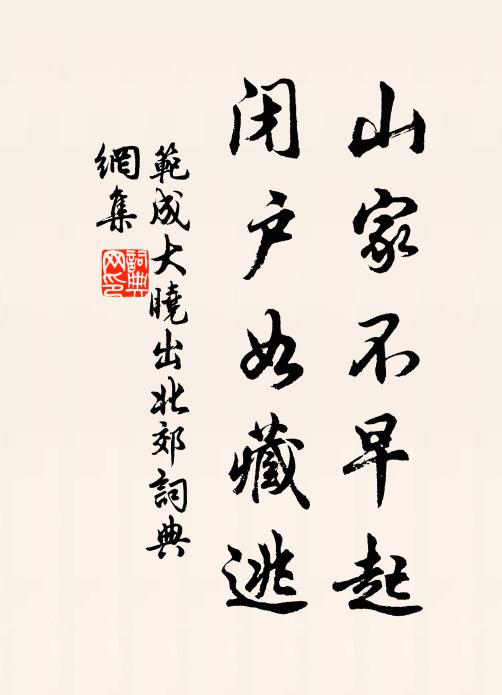 山家不早起
闭户如藏逃
範成大曉出北郊詞典
網集
詞典
网印